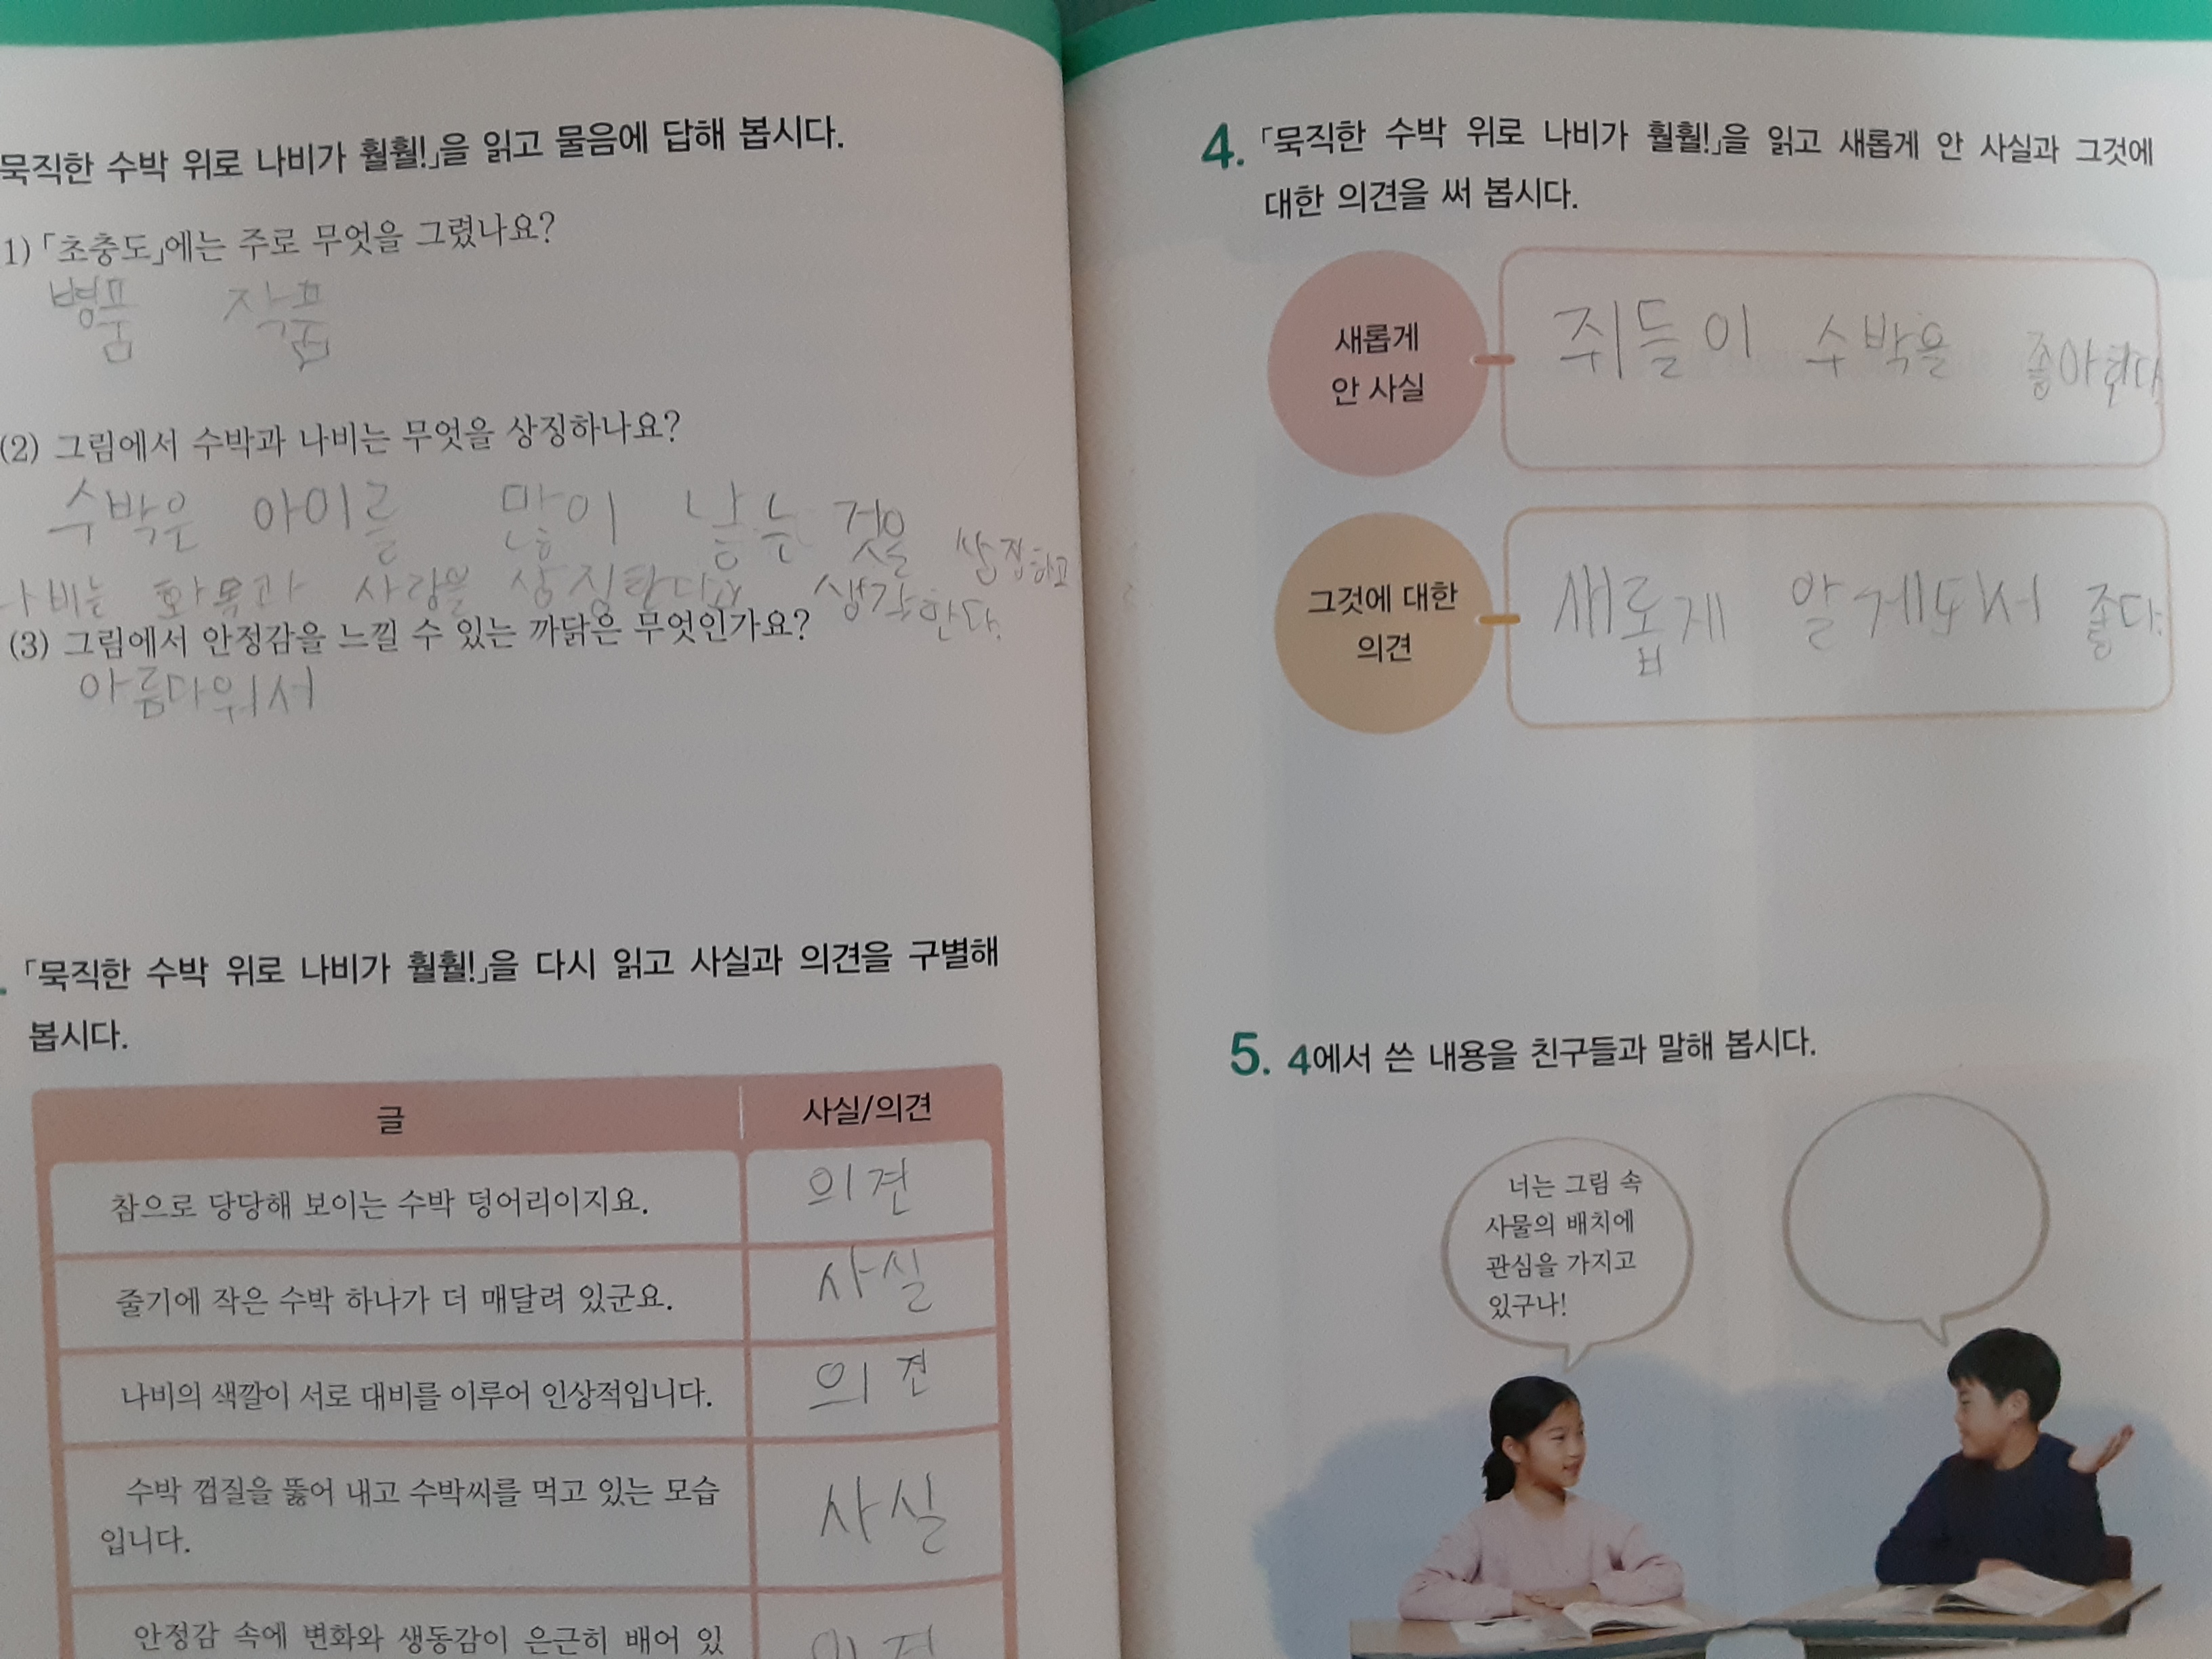 묵직한 수박 위로 나비가 훨훨!」을 읽고 물음에 답해 봅시다.
1) 「초충도」에는 주로 무엇을 그렸나요?
병품 작품
(2) 그림에서 수박과 나비는 무엇을 상징하나요?
수박은 아이를 많이 낳는 것을 쌍징하고
나비는 화목과 사랑을 상징한다고 생각한다.
(3) 그림에서 안정감을 느낄 수 있는 까닭은 무엇인가요?
아름다워서
「묵직한 수박 위로 나비가 훨훨!」을 다시 읽고 사실과 의견을 구별해
봅시다.
글 사실/의견
참으로 당당해 보이는 수박 덩어리이지요. 의견
줄기에 작은 수박 하나가 더 매달려 있군요. 사실
나비의 색깔이 서로 대비를 이루어 인상적입니다. 의견
수박 껍질을 뚫어 내고 수박씨를 먹고 있는 모습
입니다. 사실
안정감 속에 변화와 생동감이 은근히 배어 있 의견
4. 「묵직한 수박 위로 나비가 훨훨!」을 읽고 새롭게 안 사실과 그것에
대한 의견을 써 봅시다.
새롭게
안 사실
쥐들이 수박을 좋아한다.
그것에 대한
의견
새롭게 알게되서 좋다.
5. 4에서 쓴 내용을 친구들과 말해 봅시다.
너는 그림 속
사물의 배치에
관심을 가지고
있구나!